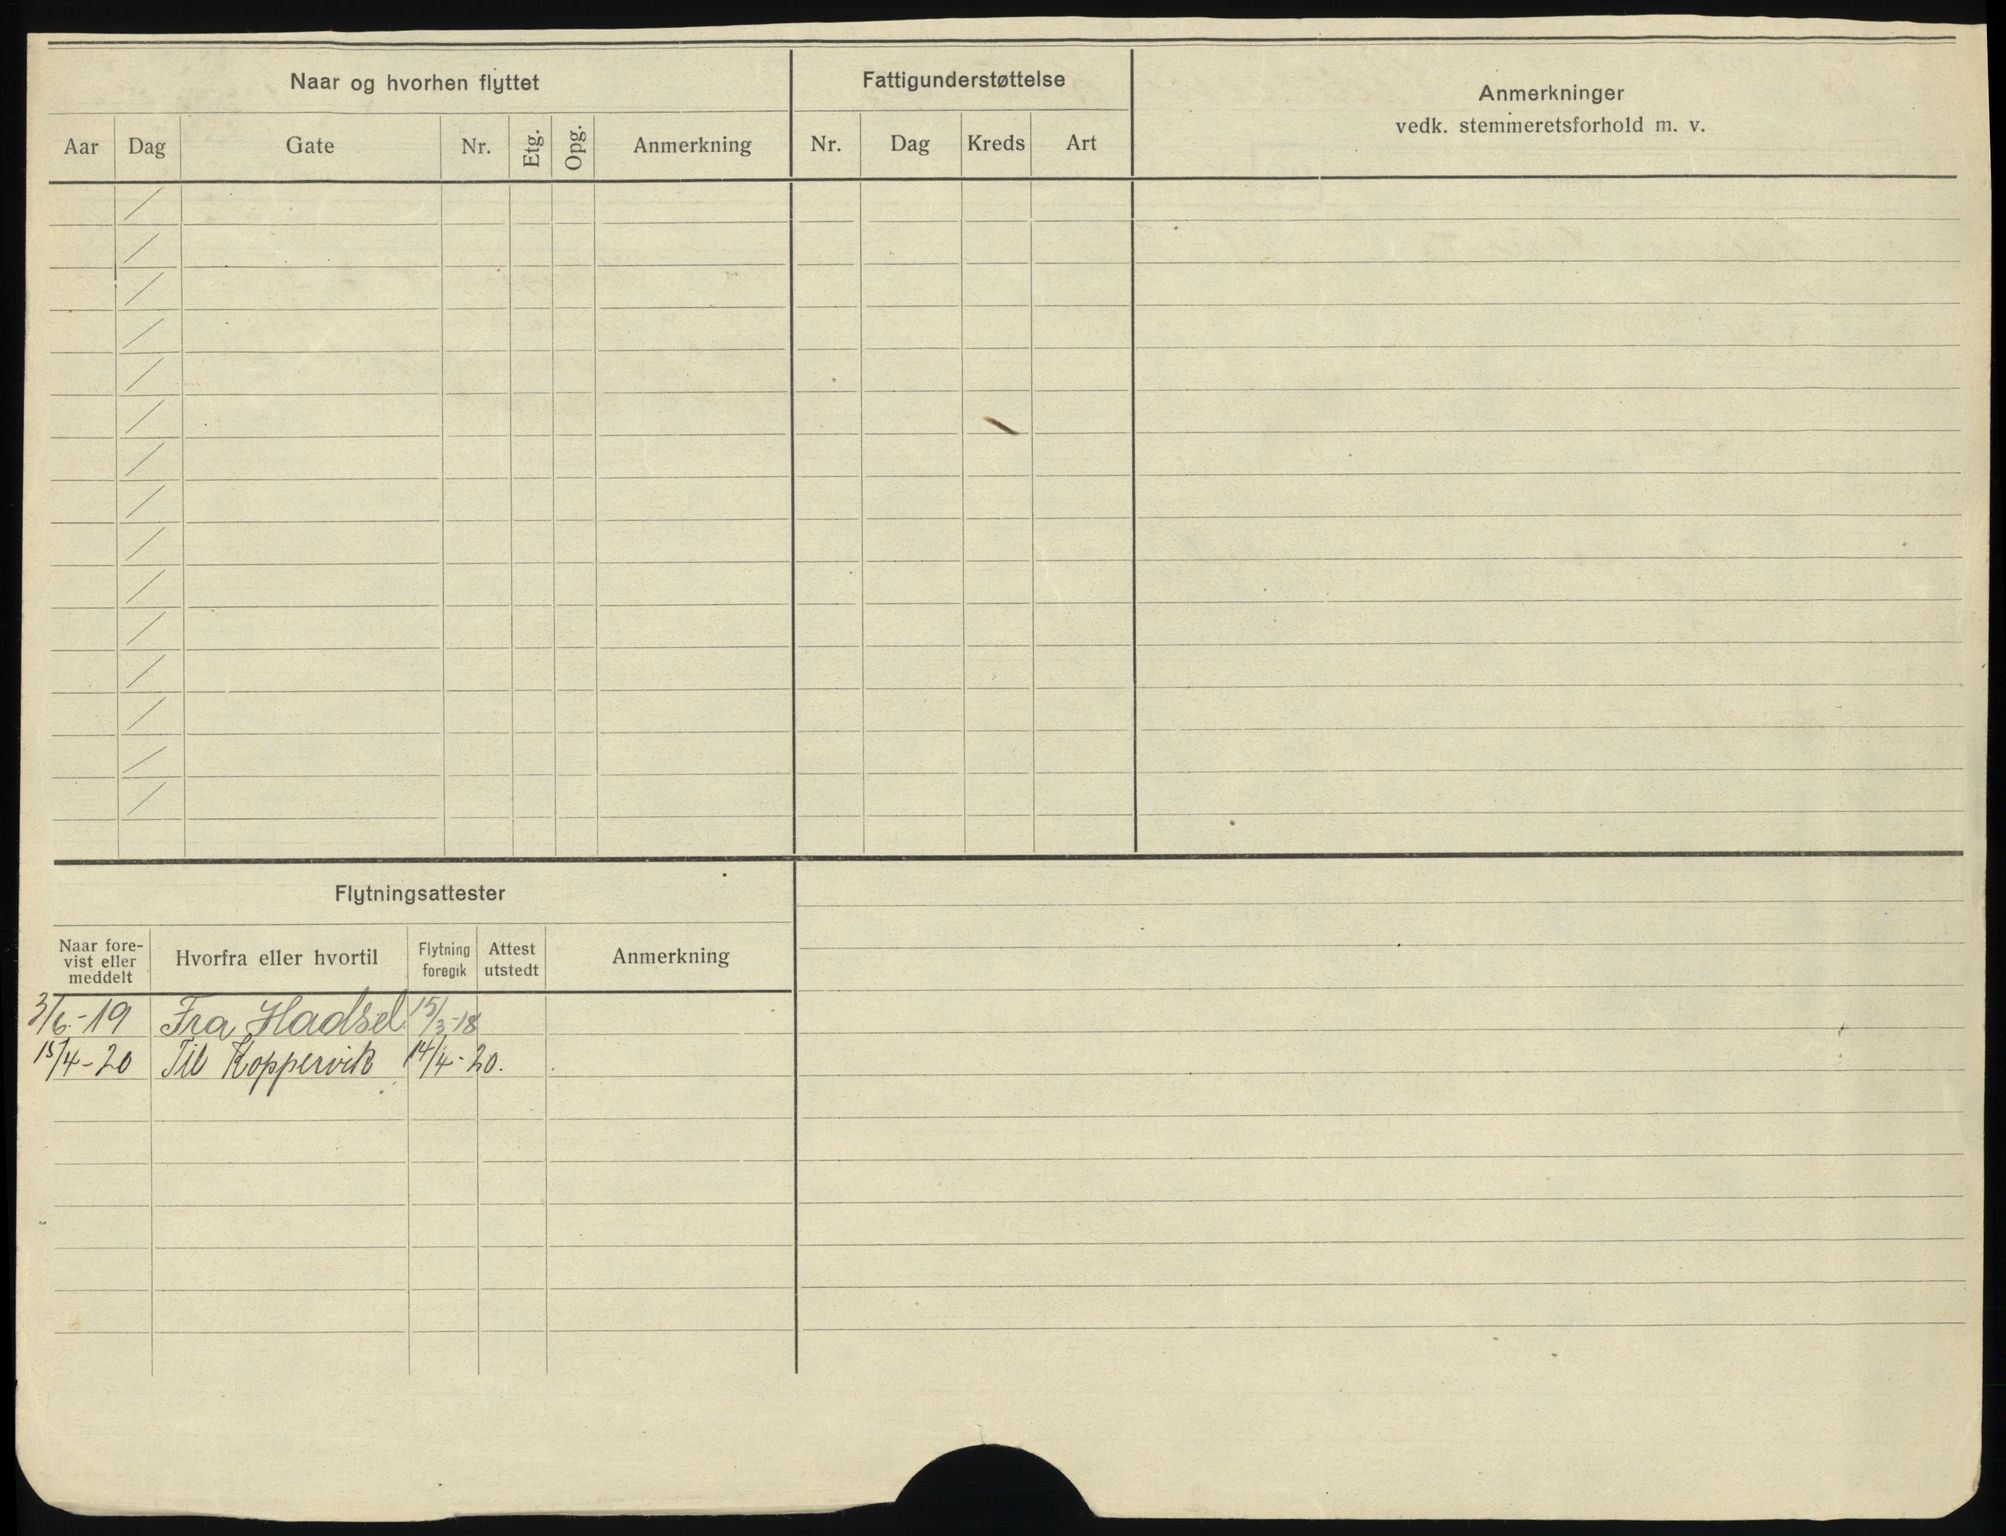 Naar og hvorhen flyttet
Fattigunderstøttelse
Anmerkninger
vedk. stemmeretsforhold m. v.
Aar Dag Gate Nr. Etg. Opg. Anmerkning Nr. Dag Kreds Art
Flytningsattester
Naar fore-
vist eller
meddelt
Hvorfra eller hvortil
Flytning
foregik
Attest
utstedt
Anmerkning
3/6-19 Fra Hadsel 15/3-18
15/4-20 Til Koppervik 14/4-20.